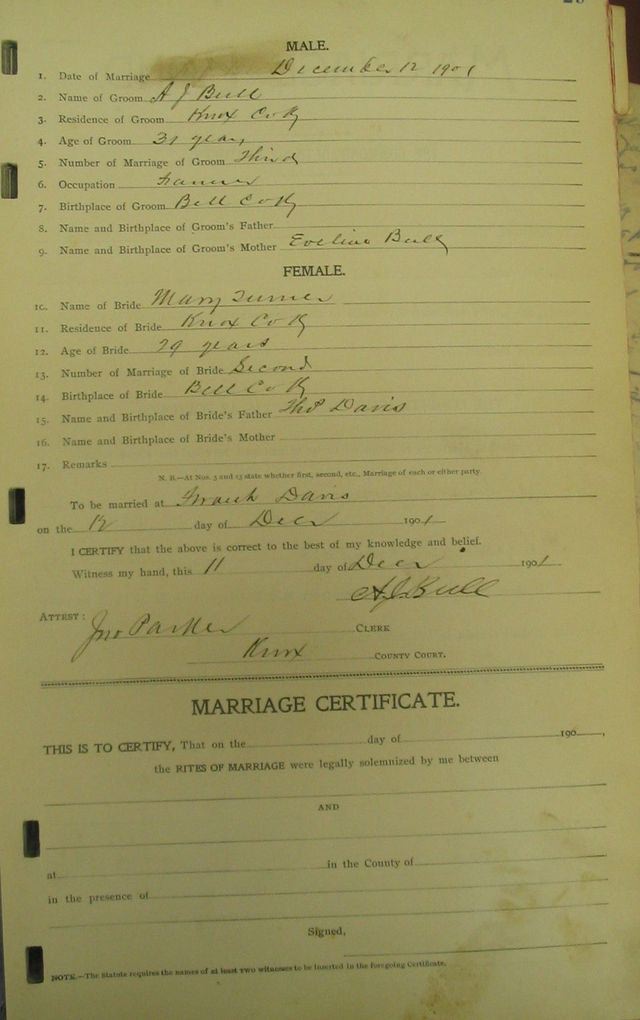 MALE.
1. Date of Marriage December 12 1901
2. Name of Groom A J Bull
3. Residence of Groom Knox Co Ky
4. Age of Groom 31 years
5. Number of Marriage of Groom Third
6. Occupation Farmer
7. Birthplace of Groom Bell Co Ky
8. Name and Birthplace of Groom's Father
9. Name and Birthplace of Groom's Mother Eveline Bull
FEMALE.
10. Name of Bride Mary Turner
11. Residence of Bride Knox Co Ky
12. Age of Bride 29 years
13. Number of Marriage of Bride Second
14. Birthplace of Bride Bell Co Ky
15. Name and Birthplace of Bride's Father Thos Davis
16. Name and Birthplace of Bride's Mother
17. Remarks
N. B.—At Nos. 5 and 13 state whether first, second, etc., Marriage of each or either party.
To be married at Davis
on the 12 day of Decr 1901
I CERTIFY that the above is correct to the best of my knowledge and belief.
Witness my hand, this 11 day of Decr 1901
A J Bull
ATTEST:
Jno Parker CLERK
Knox COUNTY COURT.
MARRIAGE CERTIFICATE.
THIS IS TO CERTIFY, That on the day of 190 ,
the RITES OF MARRIAGE were legally solemnized by me between
AND
at in the County of
in the presence of
Signed,
NOTE.—The Statute requires the names of at least two witnesses to be inserted in the foregoing Certificate.